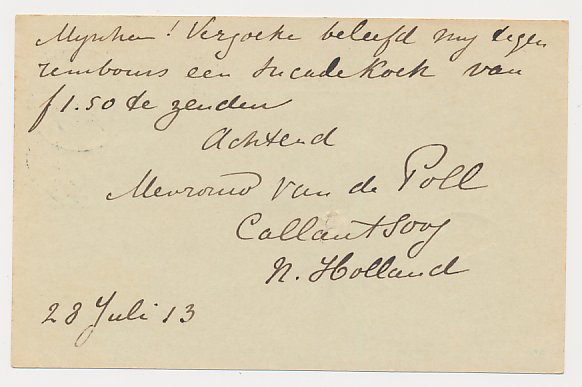 Mijnheer! Verzoeke beleefd mij tegen
rembours een sucadekoek van
f 1.50 te zenden
Achtend
Mevrouw van de Poll
Callantsoog
N. Holland
28 Juli 13